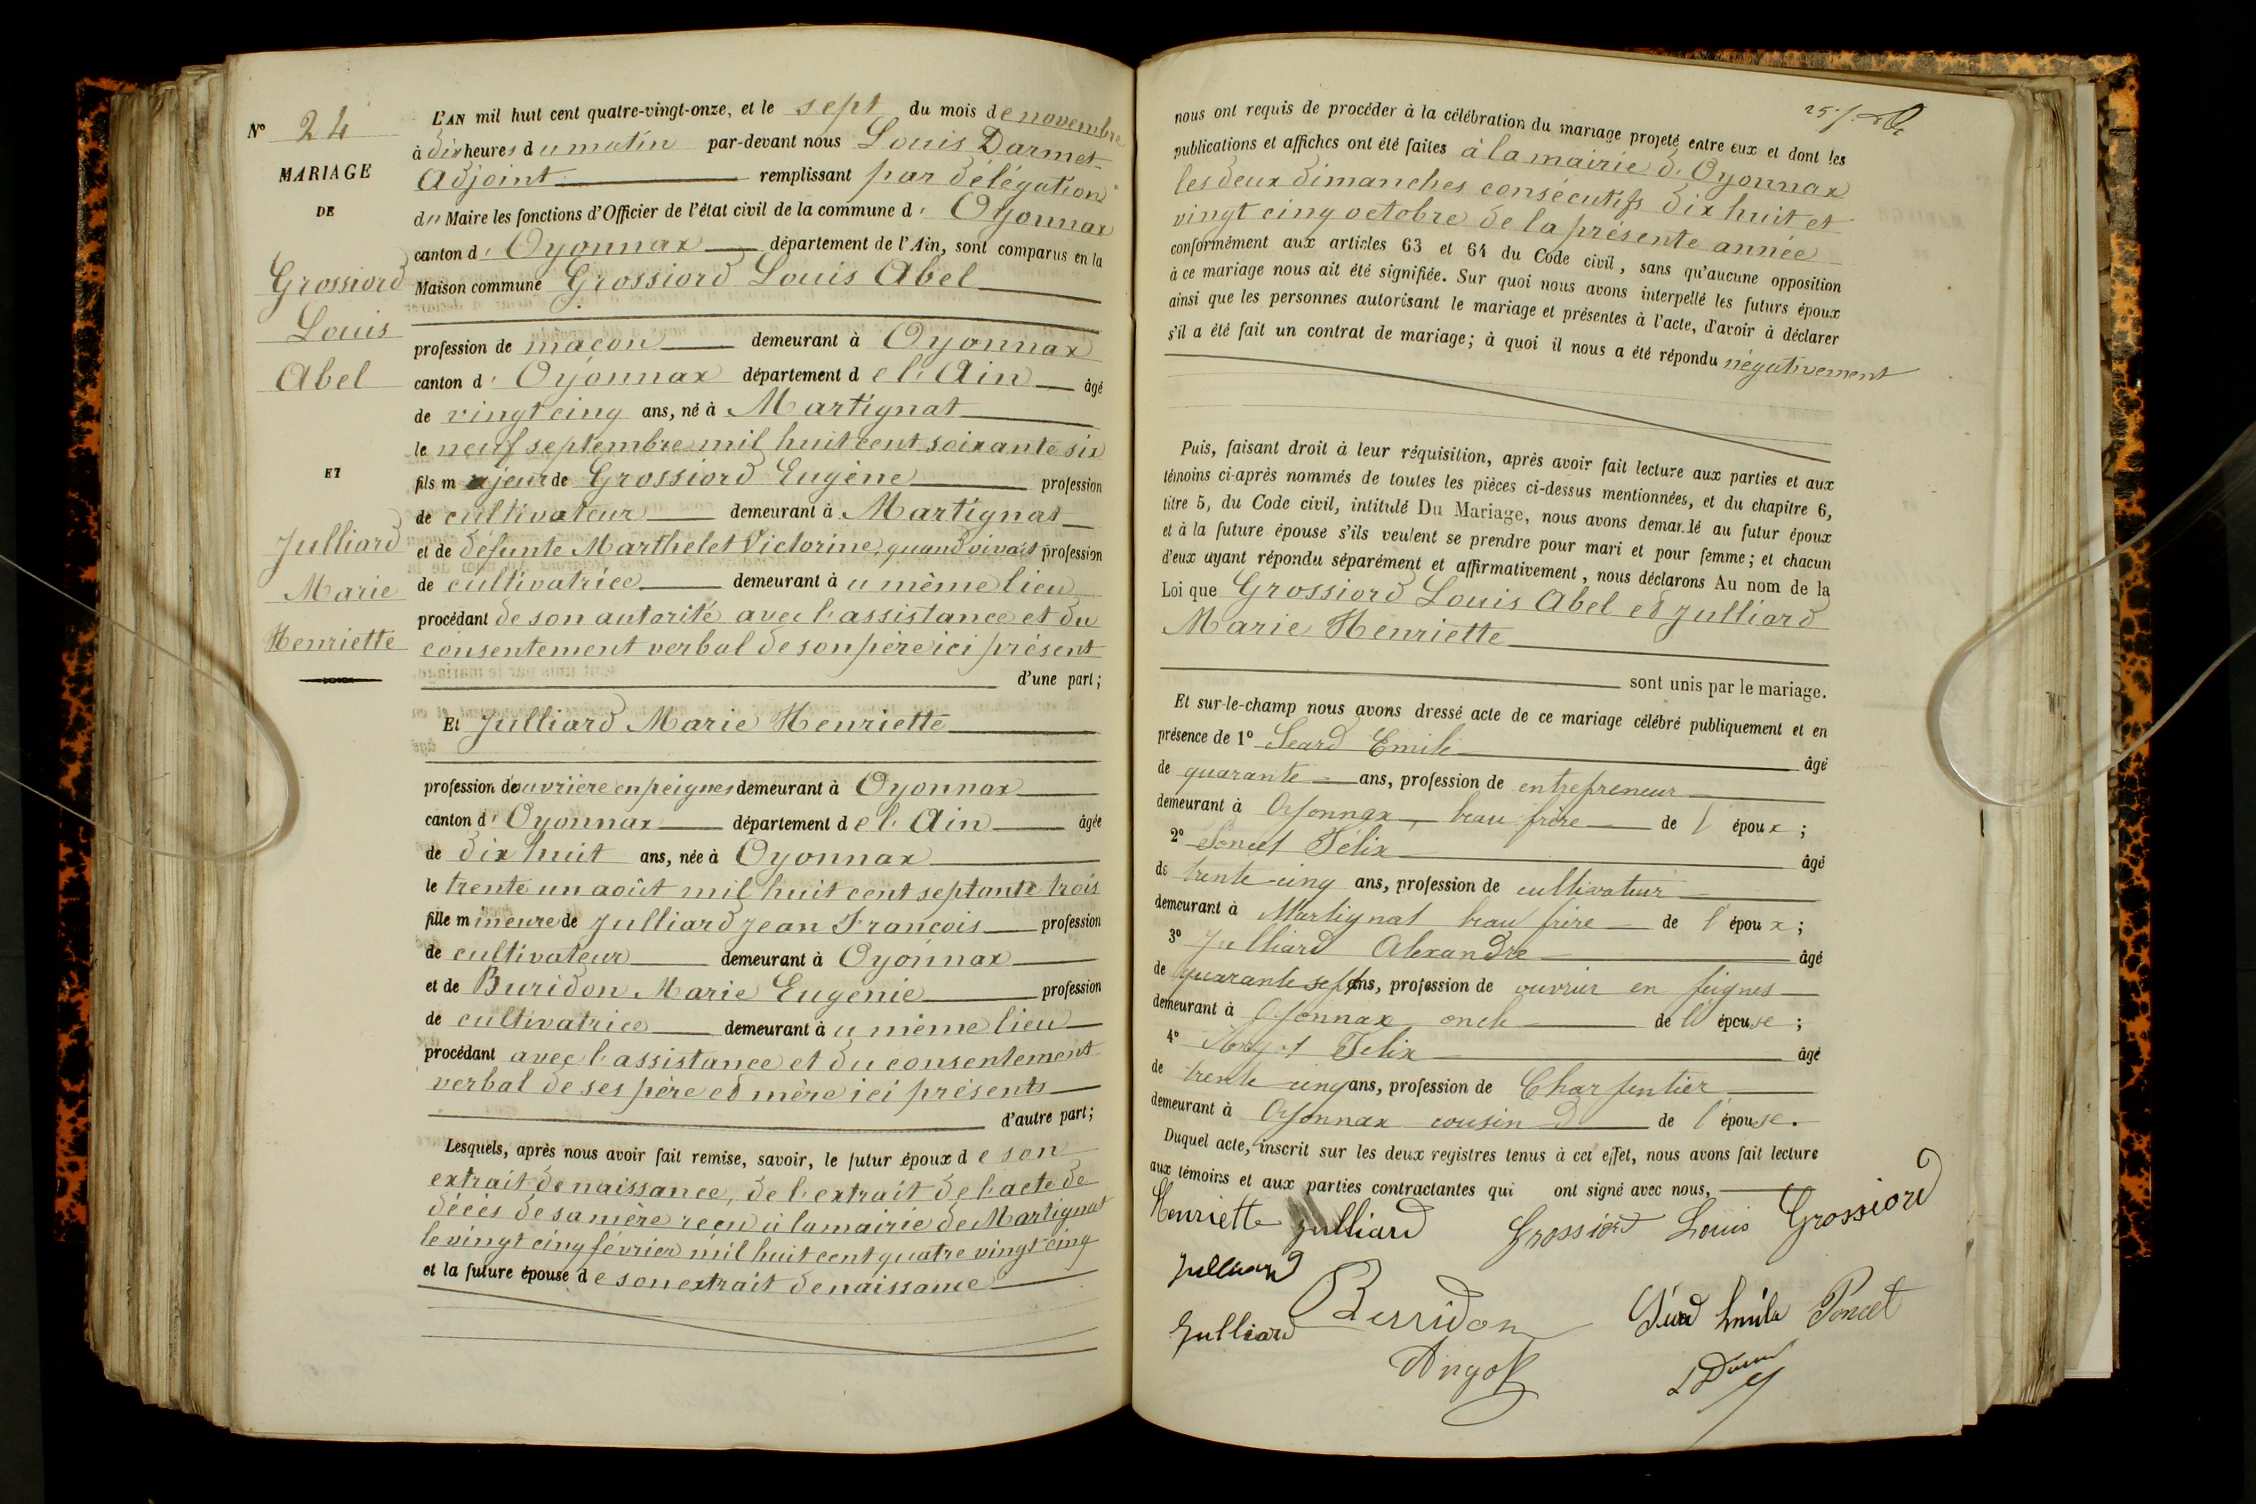 N° 24
MARIAGE
DE
Grossiord
Louis
Abel
ET
Julliard
Marie
Henriette
L'AN mil huit cent quatre-vingt-onze, et le sept du mois de novembre
à dix heures du matin par-devant nous Louis Darmet
Adjoint remplissant par délégation
du Maire les fonctions d'Officier de l'état civil de la commune d' Oyonnax
canton d' Oyonnax département de l'Ain, sont comparus en la
Maison commune Grossiord Louis Abel
profession de maçon demeurant à Oyonnax
canton d' Oyonnax département de l'Ain âgé
de vingt cinq ans, né à Martignat
le neuf septembre mil huit cent soixante six
fils majeur de Grossiord Eugène profession
de cultivateur demeurant à Martignat
et de défunte Marthelet Victorine, quand vivait profession
de cultivatrice demeurant au même lieu
procédant de son autorité avec l'assistance et du
consentement verbal de son père ici présent
d'une part;
Et Julliard Marie Henriette
profession de ouvrière en peignes demeurant à Oyonnax
canton d' Oyonnax département de l'Ain âgée
de dix huit ans, née à Oyonnax
le trente un août mil huit cent septante trois
fille mineure de Julliard Jean François profession
de cultivateur demeurant à Oyonnax
et de Buridon Marie Eugénie profession
de cultivatrice demeurant au même lieu
procédant avec l'assistance et du consentement
verbal de ses père et mère ici présents
d'autre part;
Lesquels, après nous avoir fait remise, savoir, le futur époux de son
extrait de naissance, de l'extrait de l'acte de
décès de sa mère reçu à la mairie de Martignat
le vingt cinq février mil huit cent quatre vingt cinq
et la future épouse de son extrait de naissance
25
nous ont requis de procéder à la célébration du mariage projeté entre eux et dont les
publications et affiches ont été faites à la mairie d'Oyonnax
les deux dimanches consécutifs dix huit et
vingt cinq octobre de la présente année
conformément aux articles 63 et 64 du Code civil, sans qu'aucune opposition
à ce mariage nous ait été signifiée. Sur quoi nous avons interpellé les futurs époux
ainsi que les personnes autorisant le mariage et présentes à l'acte, d'avoir à déclarer
s'il a été fait un contrat de mariage; à quoi il nous a été répondu négativement
Puis, faisant droit à leur réquisition, après avoir fait lecture aux parties et aux
témoins ci-après nommés de toutes les pièces ci-dessus mentionnées, et du chapitre 6,
titre 5, du Code civil, intitulé Du Mariage, nous avons demandé au futur époux
et à la future épouse s'ils veulent se prendre pour mari et pour femme; et chacun
d'eux ayant répondu séparément et affirmativement, nous déclarons Au nom de la
Loi que Grossiord Louis Abel et Julliard
Marie Henriette
sont unis par le mariage.
Et sur-le-champ nous avons dressé acte de ce mariage célébré publiquement et en
présence de 1° Seard Emile âgé
de quarante ans, profession de entrepreneur
demeurant à Oyonnax, beau frère de l'époux;
2° Poncet Félix âgé
de trente-cinq ans, profession de cultivateur
demeurant à Martignat beau frère de l'époux;
3° Julliard Alexandre âgé
de quarante sept ans, profession de ouvrier en peignes
demeurant à Oyonnax oncle de l'épouse;
4° Angot Félix âgé
de trente-cinq ans, profession de Charpentier
demeurant à Oyonnax cousin de l'épouse.
Duquel acte, inscrit sur les deux registres tenus à cet effet, nous avons fait lecture
aux témoins et aux parties contractantes qui ont signé avec nous,
Henriette Julliard Grossiord Louis Grossiord
Julliard
Berridon Emile Poncet
Julliard
Angot